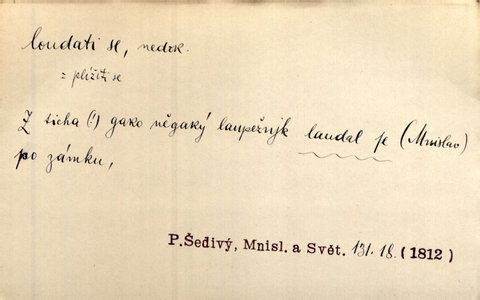 loudati se, nedok.
= plížiti se
Z ticha (!) gako něgaký laupežnjk laudal se (Mnislav)
po zámku,
P. Šedivý, Mnisl. a Svět. 131.18. (1812)